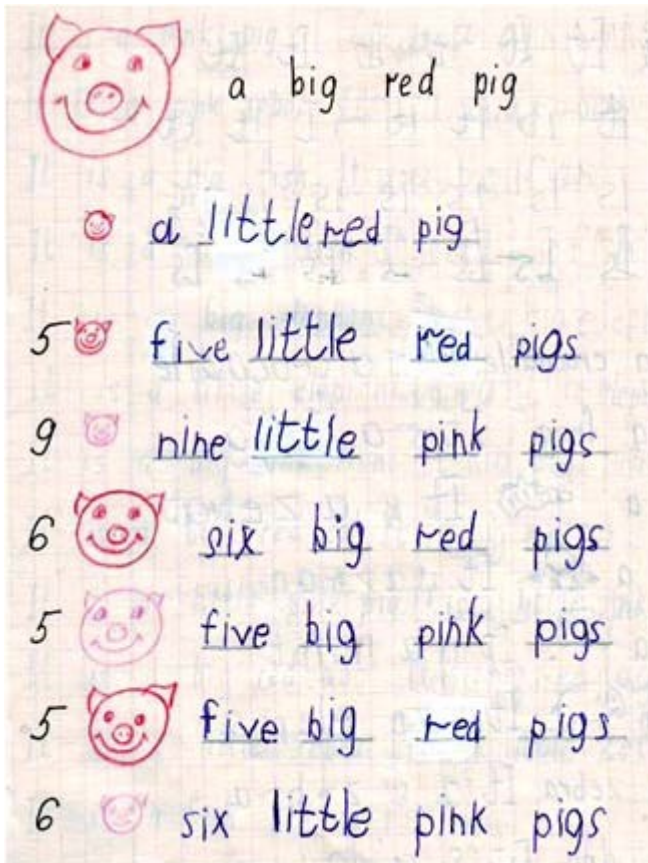 a big red pig
a little red pig
5 five little red pigs
9 nine little pink pigs
6 six big red pigs
5 five big pink pigs
5 five big red pigs
6 six little pink pigs